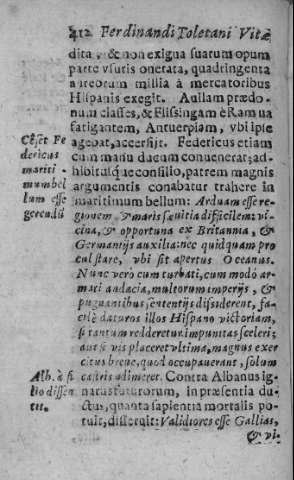 412 Ferdinandi Toletani Vitæ
dita, & non exigua suarum opum
parte vsuris onerata, quadringenta
aureorum millia à mercatoribus
Hispanis exegit. Aullam prædo-
num classes, & Flissingam è Ramua
fatigantem, Antuerpiam, vbi ipse
agebat, accersijt. Federicus etiam
cum manu ducum conuenerat; ad-
hibitúque consilio, patrem magnis
argumentis conabatur trahere in
maritimum bellum: Arduam esse re-
gionem, & maris sæuitia difficilem: vi-
cina, & opportuna ex Britannia, &
Germanijs auxilia: nec quidquam pro-
cul stare, vbi sit apertus Oceanus.
Nunc verò cum turbati, cum modò ar-
mari audacia, multorum imperijs, &
pugnantibus sententijs dissiderent, fa-
cilè daturos illos Hispano victoriam,
si tantum redderetur impunitas sceleri;
aut si vis placeret vltima, magnus exer
citus breue, quod occupauerant, solum
castris adimeret. Contra Albanus ig-
natus futurorum, in præsentia du-
ctus, quanta sapientia mortalis po-
tuit, disseruit: Validiores esse Gallias,
& vi-
Cēset Fe
dericus
mariti -
mum bel
lum esse
gerendū
Alb. à fi
lio dissen
tit.